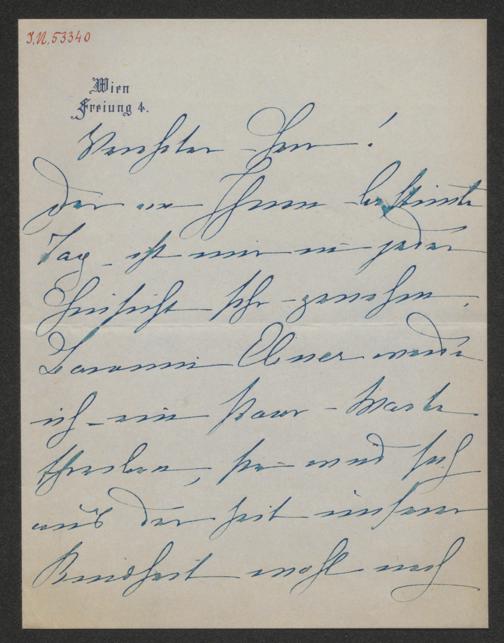 I.N. 53340
Wien
Freiung 4.
Verehrter Herr!
Der von Ihnen bestimte
Tag ist mir in jeder
Hinsicht sehr genehm.
Baronin Ebner werde
ich ein paar Worte
schreiben, sie wird sich
aus der Zeit unserer
Kindheit wohl noch